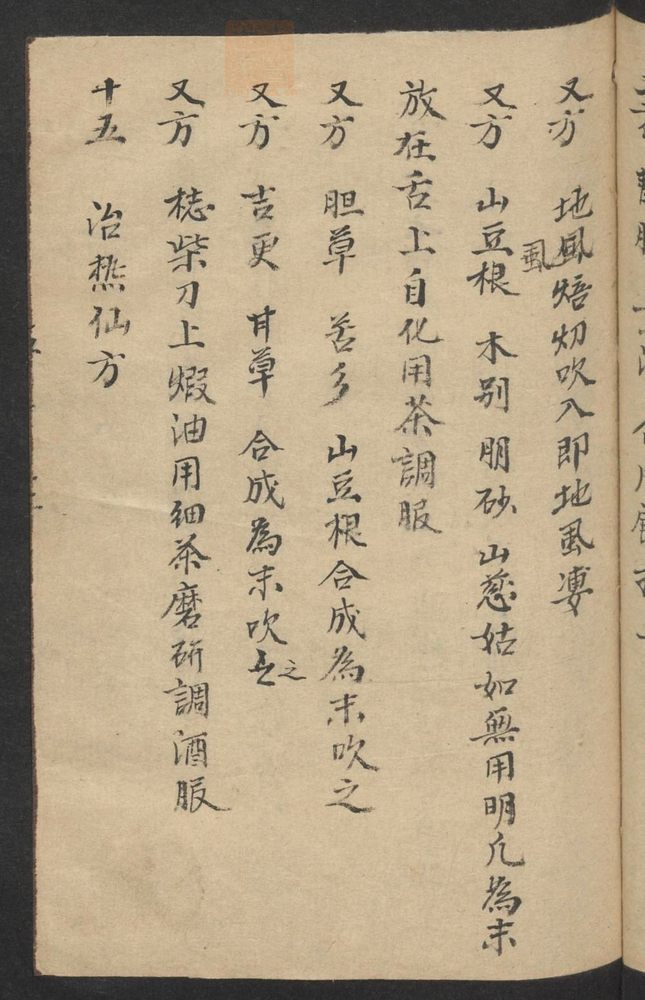 又方 地風焙灱吹入即地虱凄
虱
又方 山豆根 木别 朋砂 山慈姑如無用明凡為末
放在舌上自化用茶調服
又方 胆草 苦多 山豆根合成為末吹之
又方 吉更 甘草 合成為末吹之
之
又方 梽柴刀上煅油用細茶磨研調酒服
十五 治𤍠仙方